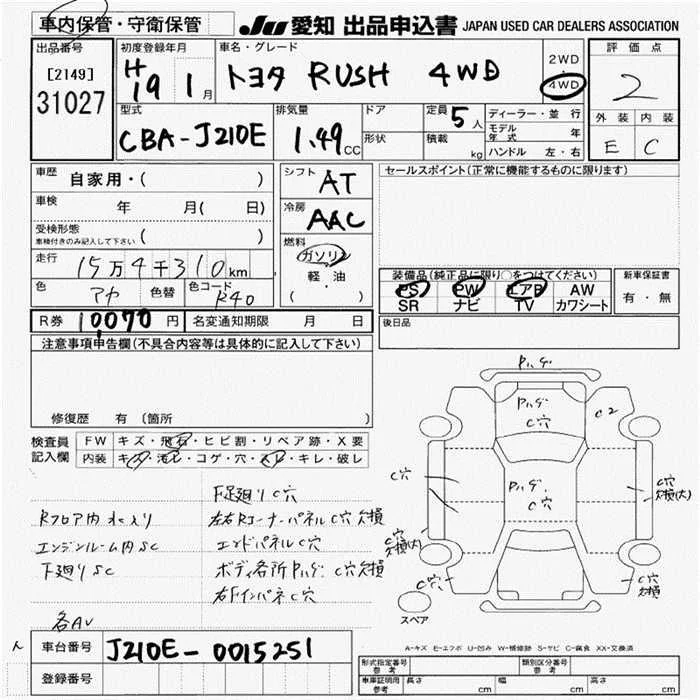 車内保管・守衛保管
JU 愛知 出品申込書 JAPAN USED CAR DEALERS ASSOCIATION
出品番号
[2149]
31027
初度登録年月
H19 1月
車名・グレード
トヨタ RUSH 4WD
2WD
4WD
評価点
2
外装 内装
E C
型式
CBA-J210E
排気量
1.49 CC
ドア
形状
定員 5人
積載 kg
ディーラー・並行
モデル年式 年
ハンドル 左・右
車歴 自家用・( )
車検 年 月( 日)
受検形態
車検付きのみ記入して下さい ( )
走行 15万4千310km
色 アカ 色替 色コード R40
シフト AT
冷房 AAC
燃料
ガソリン
軽・油
( )
セールスポイント(正常に機能するものに限ります)
装備品(純正品に限り○をつけてください)
PS PW エアB AW
SR ナビ TV カワシート
新車保証書
有・無
R券 10070円 名変通知期限 月 日
後日品
注意事項申告欄(不具合内容等は具体的に記入して下さい)
修復歴 有 (箇所
検査員記入欄
FW キズ・飛石・ヒビ割・リペア跡・X要
内装 キズ・汚レ・コゲ・穴・スレ・キレ・破レ
F足廻りC穴
Rフロア内 水入り 左右Rコーナーパネル C穴 欠損
エンジンルーム内SC エンドパネル C穴
下廻りSC ボディ各所Pハゲ C穴欠損
右Fインパネ C穴
各AV
Pハゲ
Pハゲ
C穴
C2
C穴
Pハゲ
C穴
C穴
欠損(大)
C穴
欠損(大)
C穴
C穴
欠損
スペア
A-キズ E-エクボ U-凹み W-補修跡 S-サビ C-腐食 XX-交換済
車台番号 J210E-0015251
登録番号
形式指定番号 参考
類別区分番号 参考
車庫証明用 参考 長さ cm 幅 cm 高さ cm